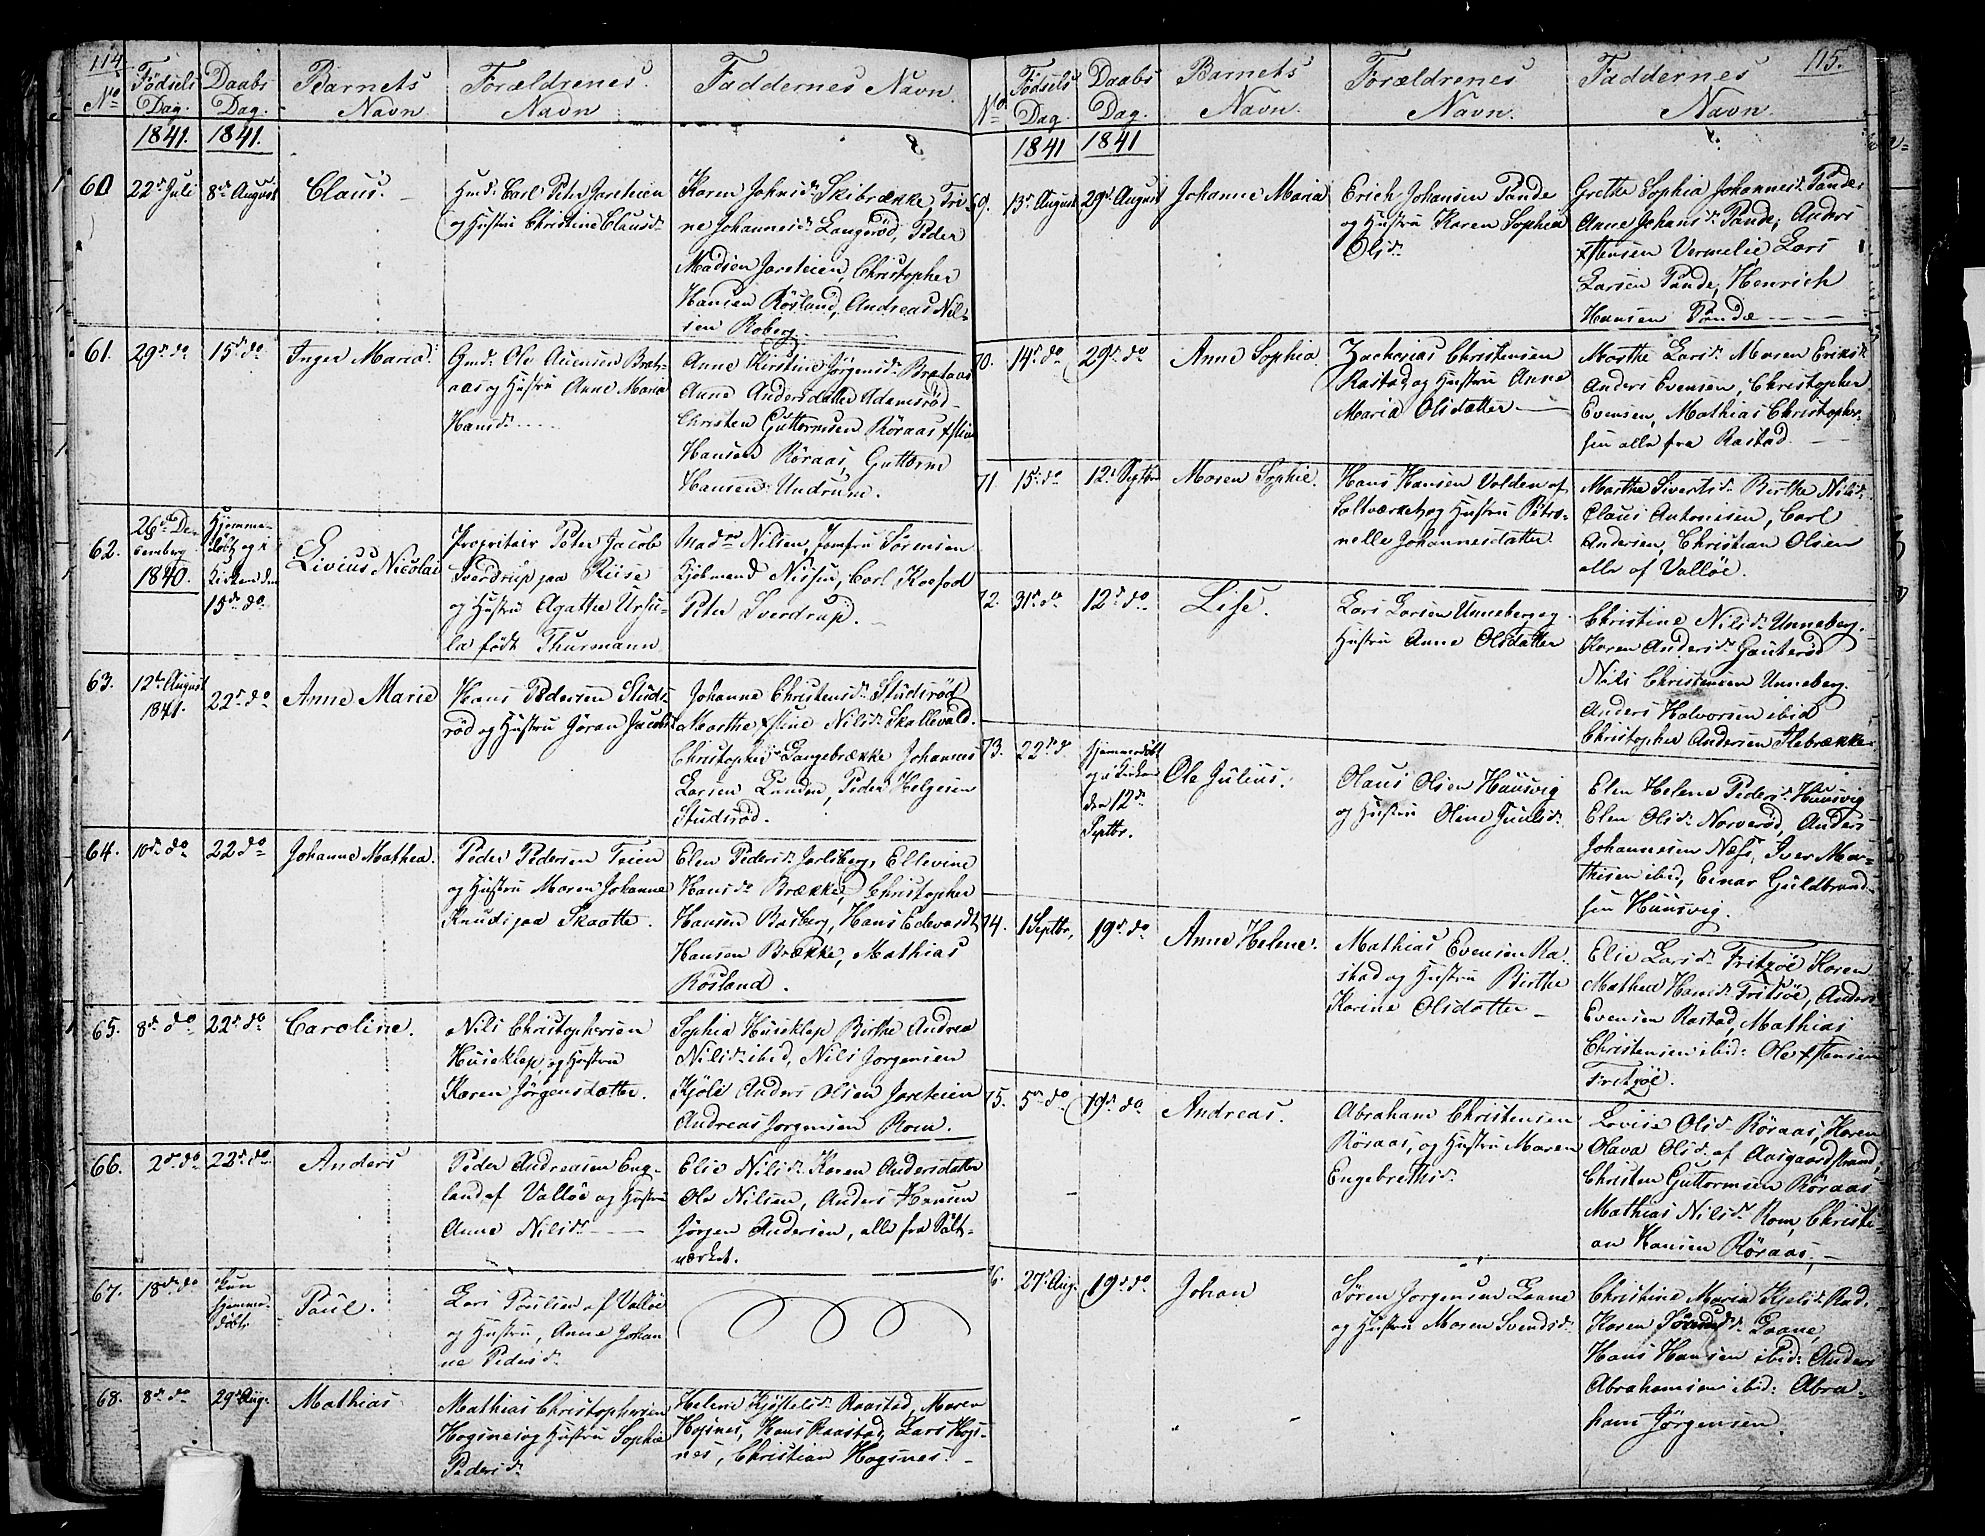 114.
No
Fødsels
Dag.
Daabs
Dag.
Barnets
Navn
Forældrenes
Navn
Faddernes Navn.
1841. 1841.
60 22de Juli 8de August Claus.
Gmd: Carl Peter Jareteien
og Hustru Christine Clausdr
Karen Johnsdr Skibrække, Tri-
ne Johannesdr Langerød, Peder
Madsen Jareteien, Christopher
Hansen Røsland, Andreas Nil-
sen Roberg.
61. 29de do 15de do Inger Maria.
Gmd: Ole Auensen Brat-
aas og Hustru Anne Maria
Hansdr
Anne Kirstine Jørgensdr Brataas
Anne Andersdatter Adamsrød
Christen Guttormsen Røraas
Hansen Røraas, Guttorm
Hansen Undrum.
62. 26de De-
cember
1840.
Hjemme-
døbt og i
Kirken den
15de do
Livius Nicolai
Propritair Peter Jacob
Sverdrup paa Riise
og Hustru Agathe Ursu-
la født Thurmann
Madme Nilsen, Jomfru Sørensen
Kjøbmand Nissen, Carl Koefod
Peter Sverdrup.
63. 12te August
1841.
22de do Anne Marie
Hans Pedersen Studs-
rød og Hustru Gøran Jacobsdr
Johanne Christensdr Studsrød
Marthe Nilsdr Skallevald.
Christopher Langebrække Johannes
Larsen Lunden, Peder Helgesen
Studsrød.
64. 10de do 22 do Johanne Mathea.
Peder Pedersen Teien
og Hustru Maren Johanne
Knudsdr paa Skaatte.
Elen Pedersdr Jarlsberg, Ellevine
Hansdr Brække, Christopher
Hansen Basberg, Hans Edevardt
Hansen Brække, Mathias
Røsland.
65. 8de do 22de do Caroline.
Nils Christophersen
Huseklep, og Hustru
Karen Jørgensdatter.
Sophia Huseklep Birthe Andrea
Nilsdr ibid, Nils Jorgensen
Kjøle Anders Olsen Jareteien
Andreas Jorgensen Rom.
66. 2de do 22de do Anders
Peder Andreasen Eng-
land af Valløe og Hustru
Anne Nilsdr
Elie Nilsdr Karen Andersdatter
Ole Nilsen, Anders Hansen
Jørgen Andersen, alle fra Salt-
værket.
67. 18de do kun
hjemme-
døbt.
Paul.
Lars Poulsen af Valløe
og Hustru, Anne Johan-
ne Pedersdr
68. 8de do 29de Aug. Mathias
Mathias Christophersen
Hogsnes og Hustru Sophie
Pedersdr
Helene Kjøstelsdr Raastad, Maren
Hogsnes, Hans Raastad, Lars Hogs-
nes, Christian Hogsnes.
115.
No
Fødsels
Dag.
Daabs
Dag.
Barnets
Navn.
Forældrenes
Navn.
Faddernes
Navn.
1841 1841
69. 13de August 29de August Johanne Maria
Erich Johansen Tande
og Hustru Karen Sophia
Olsdr
Grethe Sophia Johannesdr Tande,
Anne Johansdr Tande, Anders
Vermelie Lars
Larsen Tande, Henrich
Hansen Tande
70. 14de do 29de do Anne Sophia
Zacharias Christensen
Rastad og Hustru Anne
Maria Olsdatter
Marthe Larsdr Maren Eriksdr
Anders Evensen, Christopher
Evensen, Mathias Christopher-
sen alle fra Rastad.
71 15de do 12te Septbr Maren Sophie.
Hans Hansen Volden af
Saltværket, og Hustru Petro-
nelle Johannesdatter.
Marthe Sivertsdr Birthe Nilsdr
Claus Antonisen, Carl
Andersen, Christian Olsen
alle af Valløe.
72. 31de do 12te do Lise.
Lars Larsen Unneberg og
Hustru Anne Olsdatter
Christine Nilsdr Unneberg.
Karen Andersdr Gauterød
Nils Christensen Unneberg.
Anders Halvorsen ibid
Christopher Andersen Ilebrække
73. 22de do Hjemmedøbt
og i Kirken
den 12te
Septbr.
Ole Julius.
Olaus Olsen Huusvig
og Hustru Olene Juulsdr
Elen Helene Pedersdr Huusvig
Elen Olsdr Norverød, Anders
Johannesen Næss, Iver Mar-
thisen ibid, Einar Guldbrand-
sen Huusvig.
74. 1 Septbr, 19de do Anne Helene.
Mathias Evensen Ra-
stad og Hustru Birthe
Karine Olsdatter
Elie Larsdr Fritzøe Karen
Mathea Hansdr Fritsøe, Anders
Evensen Rastad, Mathias
Christensen ibid: Ole
Fritzøe.
75. 5de do 19de do Andreas.
Abraham Christensen
Røraas, og Hustru Maren
Engebrethsdr
Lovise Olsdr Røraas, Karen
Olava Olsdr af Aasgaardstrand,
Christen Guttormsen Røraas
Mathias Nilsdr Rom, Christi-
an Hansen Røraas,
76. 27de Aug. 19de do Johan
Søren Jorgensen Laane
og Hustru Maren Svendsdr
Christine Maria Kjelsdr Rad,
Karen Laane,
Hans Hansen ibid: Anders
Abrahamsen ibid: Abra-
ham Jørgensen.